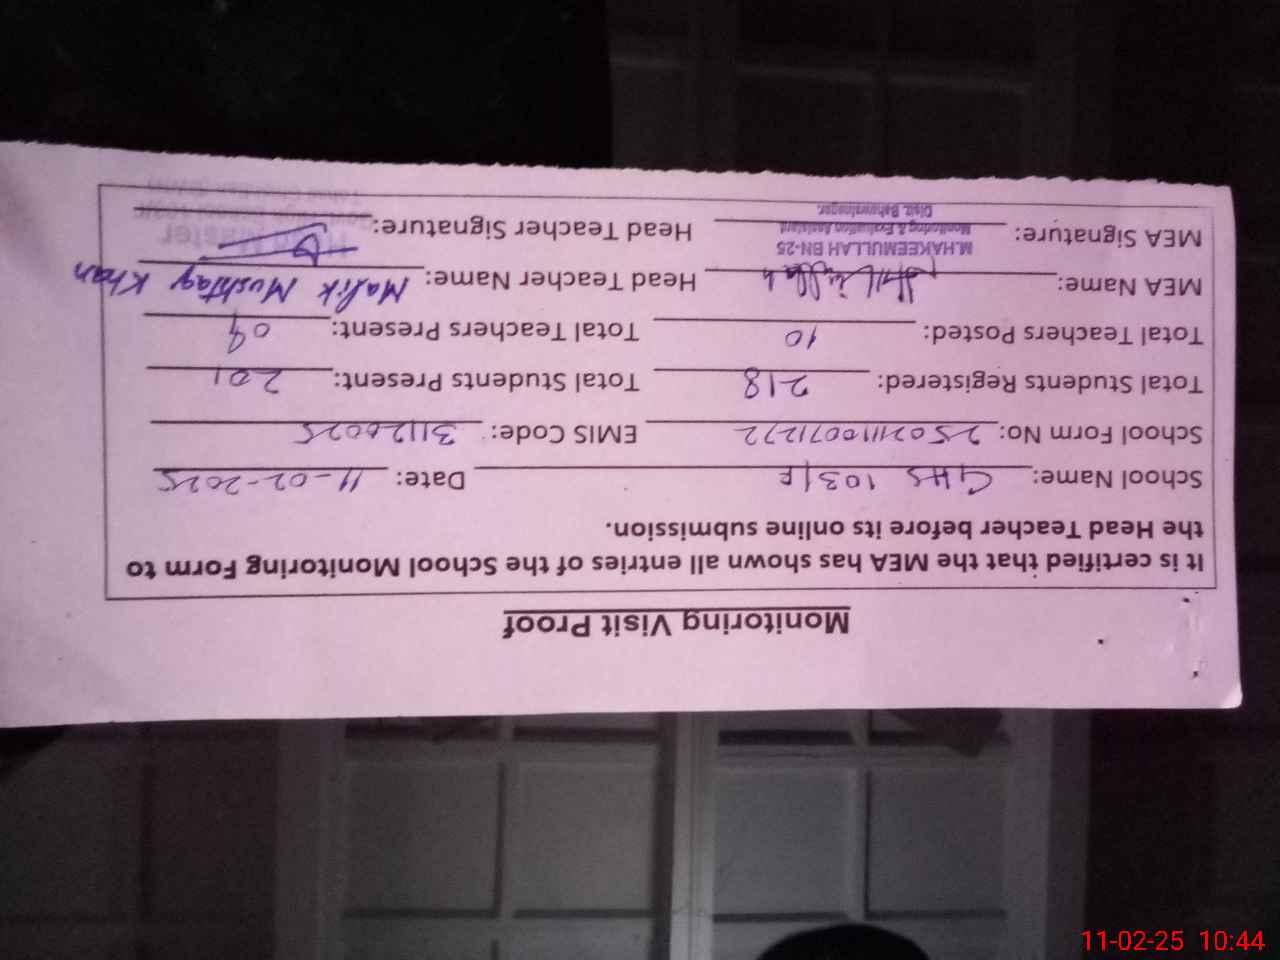 Monitoring Visit Proof
It is certified that the MEA has shown all entries of the School Monitoring Form to
the Head Teacher before its online submission.
School Name: GHS 103/F Date: 11-02-2025
School Form No: 250211110071272 EMIS Code: 31120025
Total Students Registered: 218 Total Students Present: 201
Total Teachers Posted: 10 Total Teachers Present: 09
MEA Name: Head Teacher Name: Malik Mushtaq Khan
M.HAKEEMULLAH BN-25
MEA Signature: Monitoring & Evaluation Assistant Head Teacher Signature: Head Master
Distt. Bahawalnagar.
11-02-25 10:44